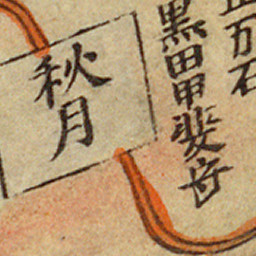 五万石
黒田甲斐守
秋月